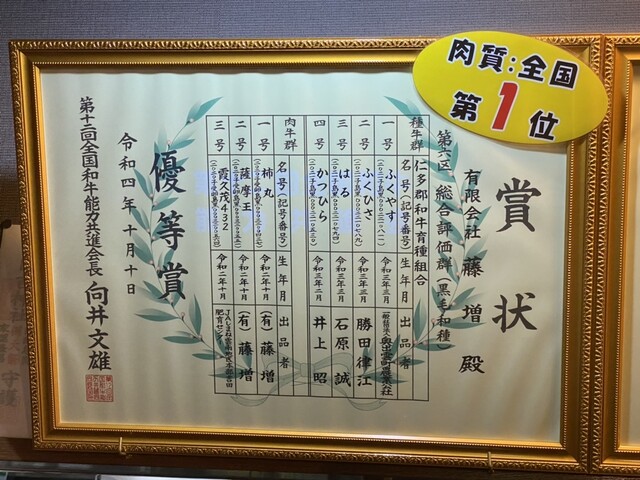 肉質:全国
第1位
賞状
有限会社 藤増 殿
第六区 総合評価群(黒毛和種)
仁多郡和牛育種組合
種牛群 名号(記号番号) 生年月 出品者
一号 ふくやす 令和三年三月
二号 ふくひさ 令和三年三月 勝田律江
三号 はる 令和三年三月 石原誠
四号 かつひら 令和三年二月 井上昭
肉牛群 名号(記号番号) 生年月 出品者
一号 柿丸 令和二年十月 (有)藤増
二号 薩摩王 令和二年十月 (有)藤増
三号 霞久茂432 令和二年十月 肥育センター
優等賞
令和四年十月十日
第十二回全国和牛能力共進会長 向井文雄